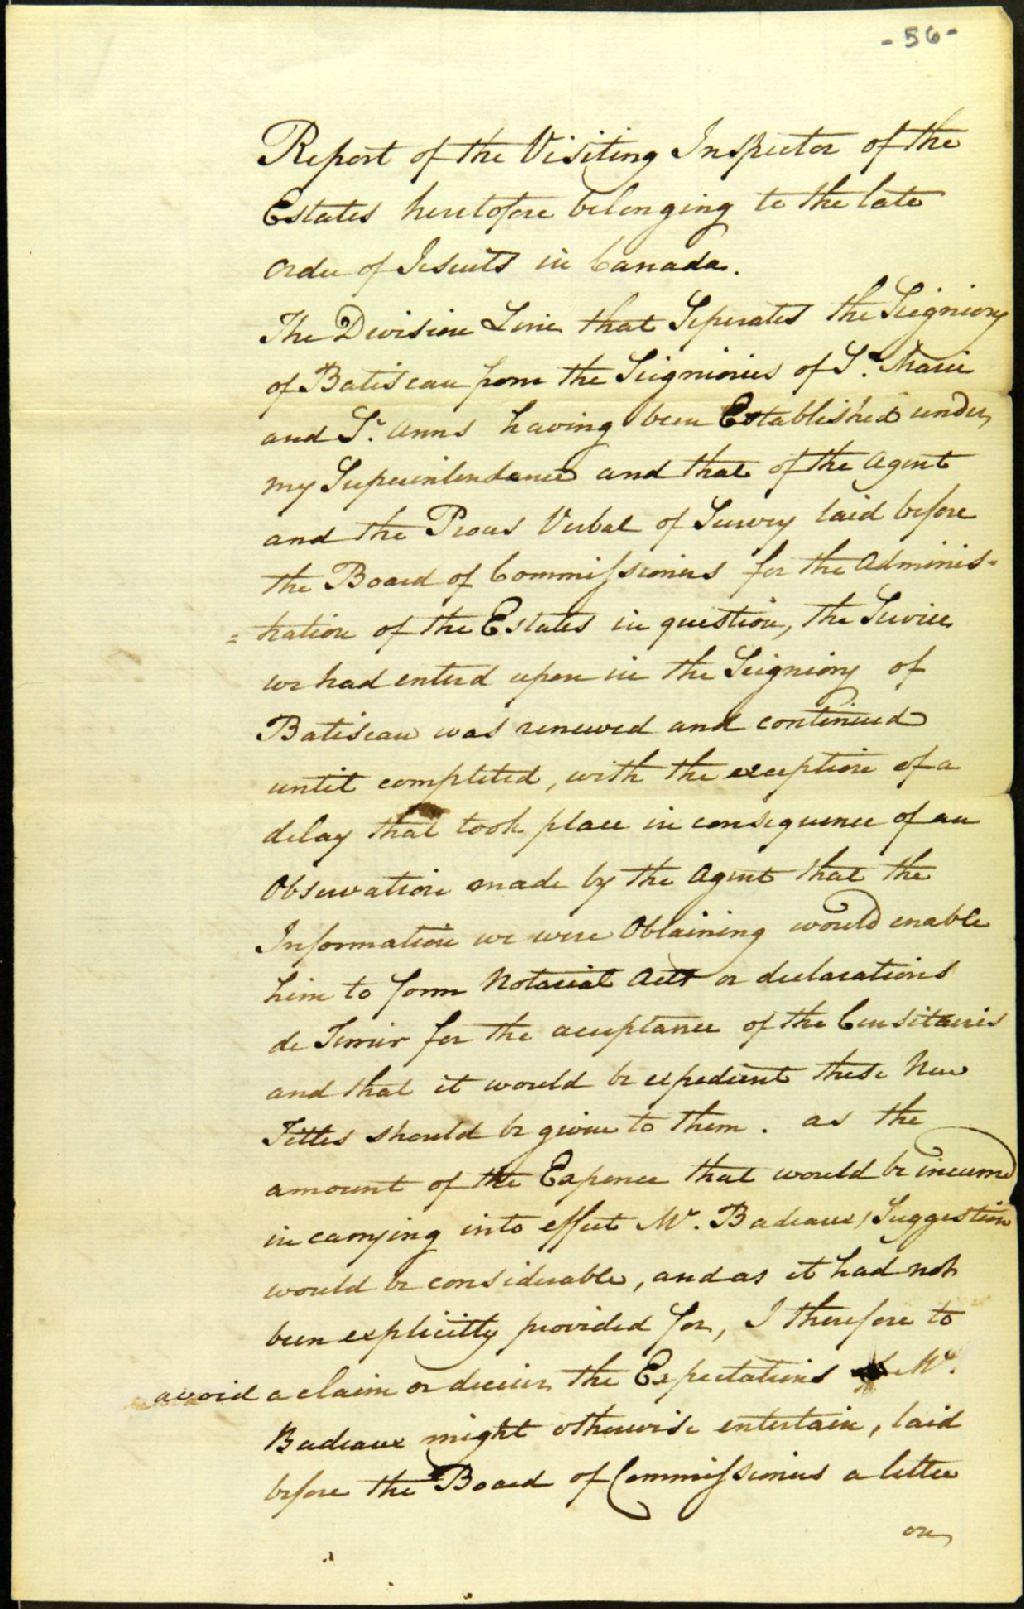 - 56 -
Report of the Visiting Inspector of the
Estates heretofore belonging to the late
Order of Jesuits in Canada.
The Division Line that Seperates the Seigniory
of Batiscan from the Seigniories of St. Marie
and St. Anns having been Established under
my Superintendance and that of the Agent
and the Proces Verbal of Survey laid before
the Board of Commissioners for the Adminis-
=tration of the Estates in question, the Service
we had entered upon in the Seigniory of
Batiscan was renewed and continued
until completed, with the exception of a
delay that took place in consequence of an
Observation made by the Agent that the
Information we were Obtaining would enable
him to form Notarial Acts or declarations
de Terrier for the acceptance of the Censitaires
and that it would be expedient these New
Titles should be given to them. as the
amount of the Expence that would be incurred
in carrying into effect Mr. Badeaux Suggestion
would be considerable, and as it had not
been explicitly provided for, I therefore to
avoid a claim or deceive the Expectations Mr.
Badeaux might otherwise entertain, laid
before the Board of Commissioners a letter
on